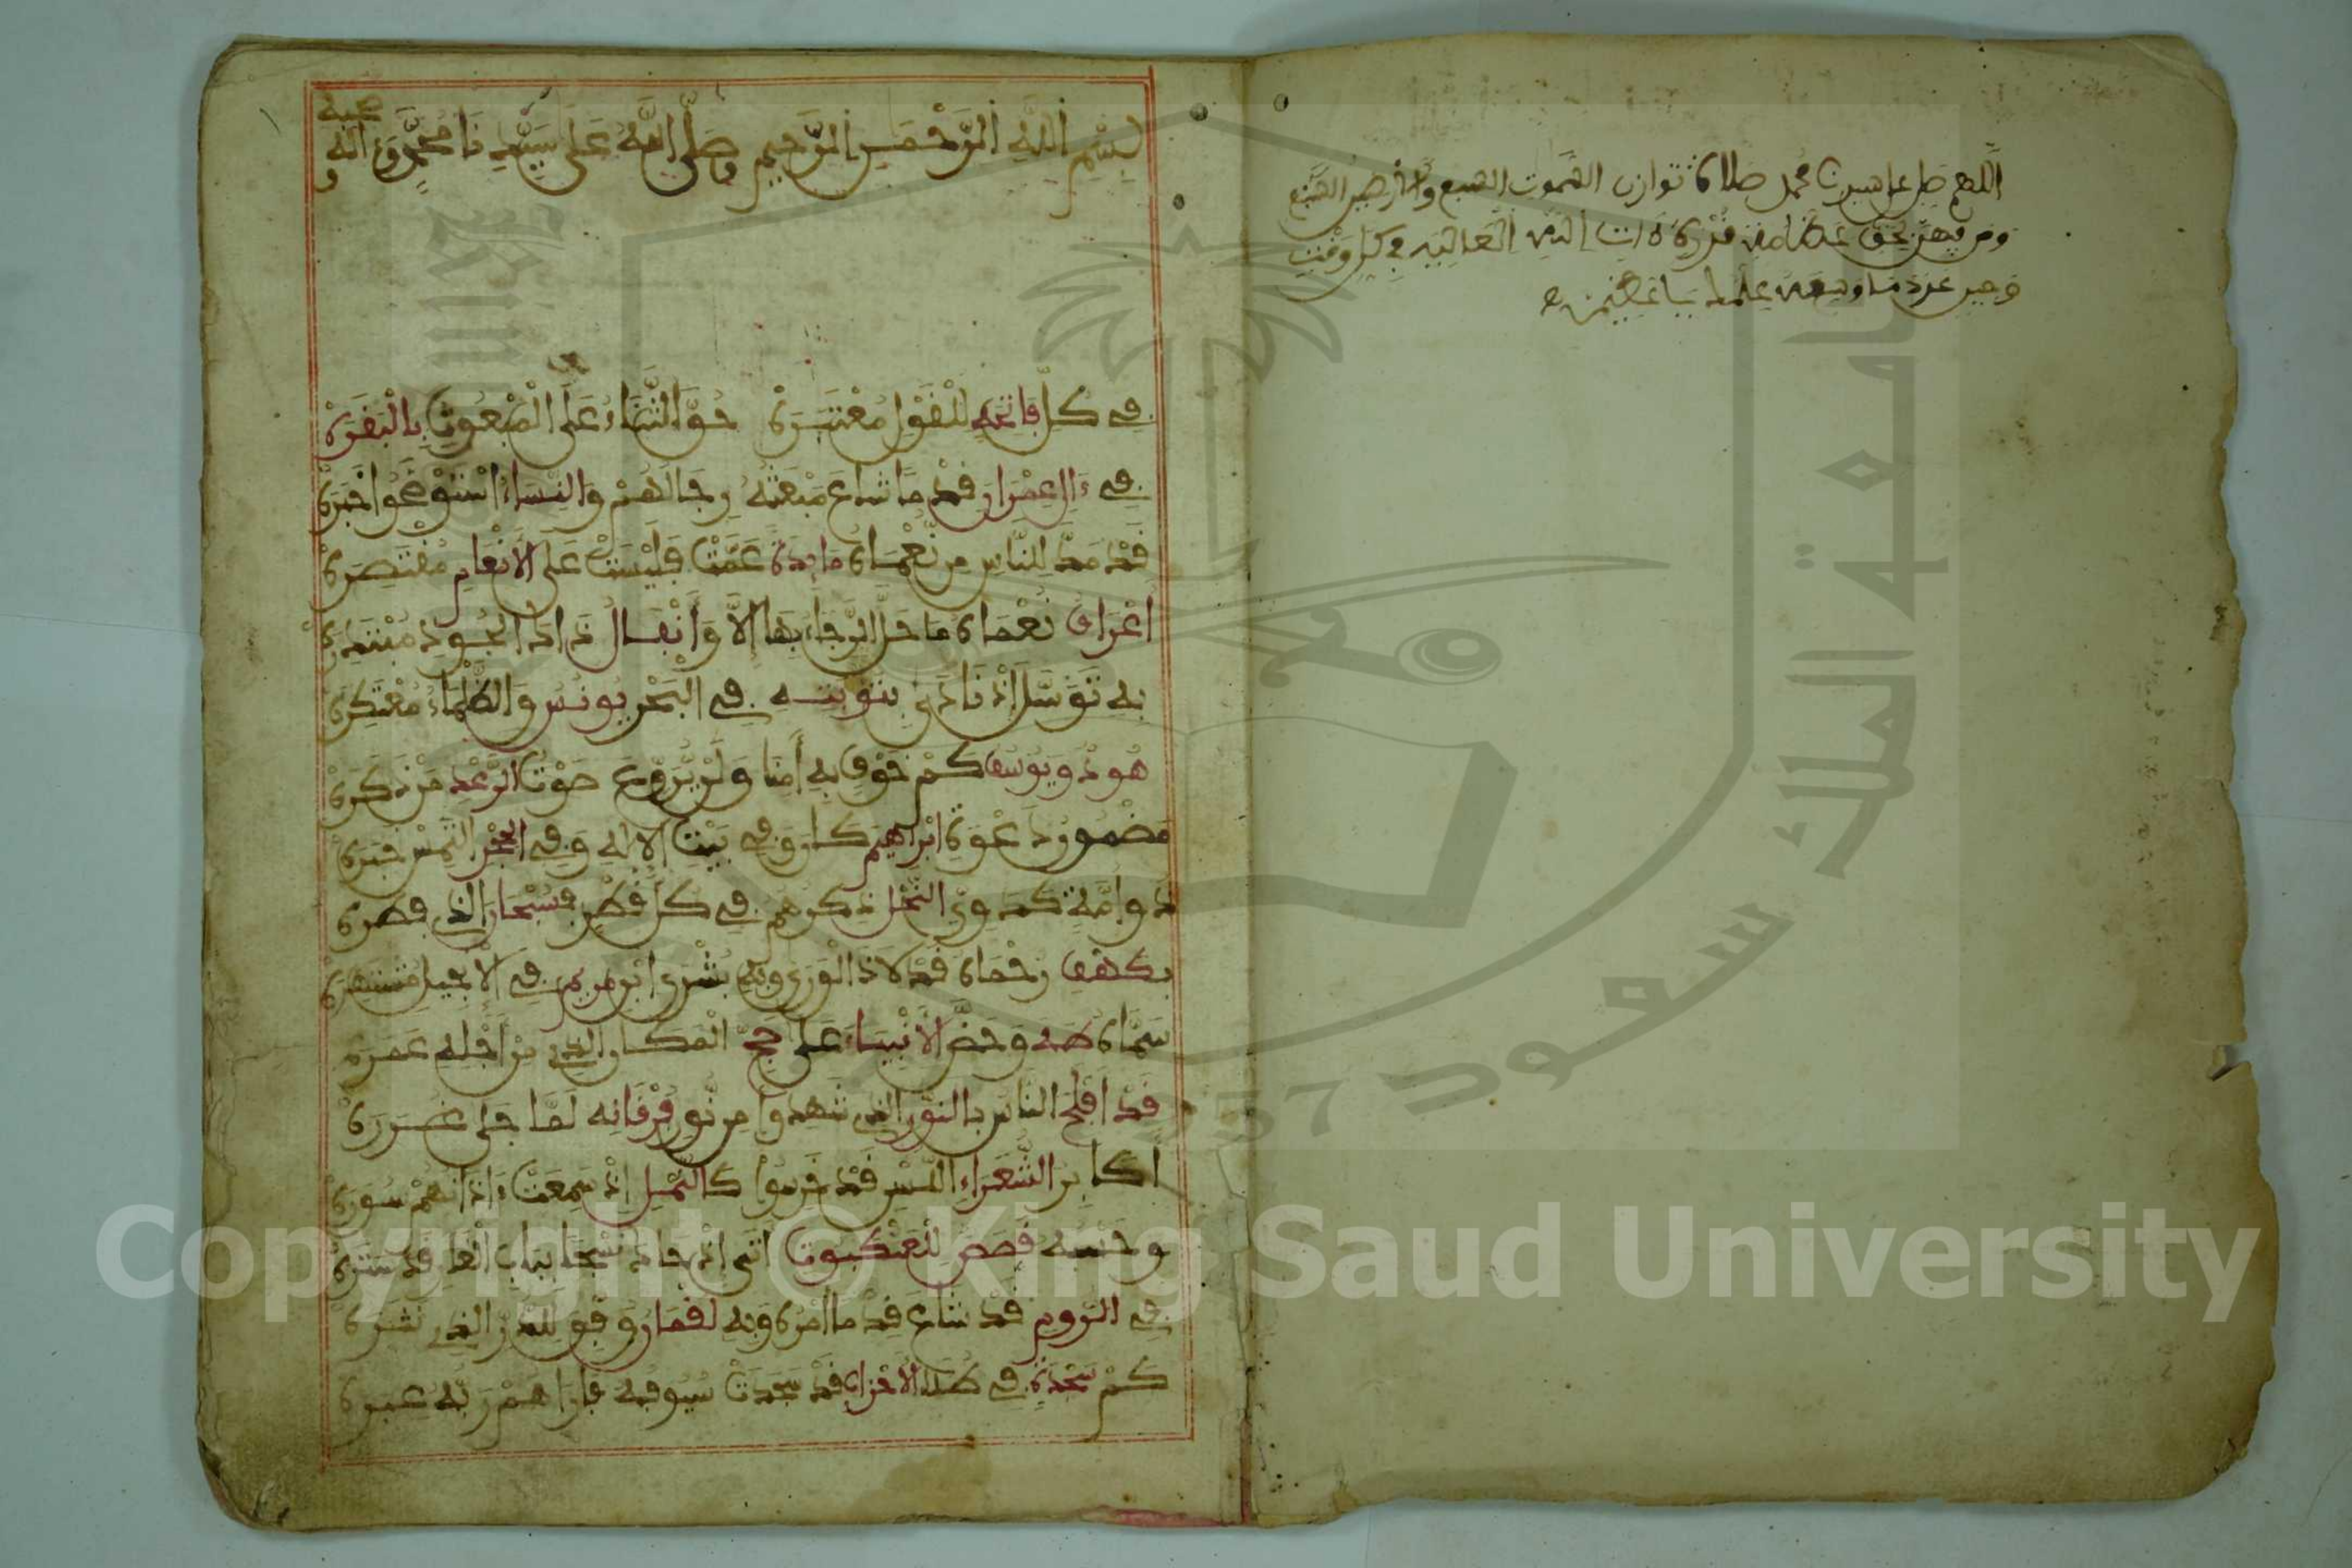 اللهم صل على سيدنا محمد صلاة توازن السموت السبع والارضين السبع
ومن فيهن بحق عظامة قدرة ذات الله العالية في كل وقت
وحين عدد ما وسعه علمك يا عظيم
بِسْمِ اللَّهِ الرَّحْمَنِ الرَّحِيمِ وَصَلَّى اللَّهُ عَلَى سَيِّدِنَا مُحَمَّدٍ وَءَالِهِ وصحبه
في كل فاتحة للقول معتبرة حق الثناء على المبعوث بالبقرة
في ءال عمران قدما شاع مبعثه رجالهم والنساء استوضحوا خبره
قد مد للناس من نعماه مايدة عمت فليست على الأنعام مقتصرة
اعراف نعماه ما حل الرجاء بها إلا وأنفال ذاك الجود مبتدرة
به توسل إذ نادى بتوبته في البحر يونس والظلماء معتكرة
هود ويوسف كم خوف به أمنا ولن يروع صوت الرعد من ذكره
مضمون دعوة ابراهيم كان وفي بيت الإله وفي الحجر التمس خبره
ذو امة كدوي النحل ذكرهم في كل قطر فسبحان الذي فطره
بكهف رحماه قد لاذ الورى وبه بشرى ابن مريم في الانجيل مشتهرة
سماه طه وحض الأنبياء على حج المكان الذي من أجله عمره
قد أفلح الناس بالنور الذي شهدوا من نور فرقانه لما جلى غرره
أكابر الشعراء اللسن قد خرسوا كالنمل إذ سمعت ءاذانهم سوره
وحسبه قصص للعنكبوت أتى إذ حاك نسجا بباب الغار قد ستره
في الروم قد شاع قدما امره وبه لقمان وفق للدر الذي نثره
كم سجدة في طلا الأحزاب قد سجدت سيوفه فأراهم ربه عبره
Copyright © King Saud University
جامعة الملك سعود
1957